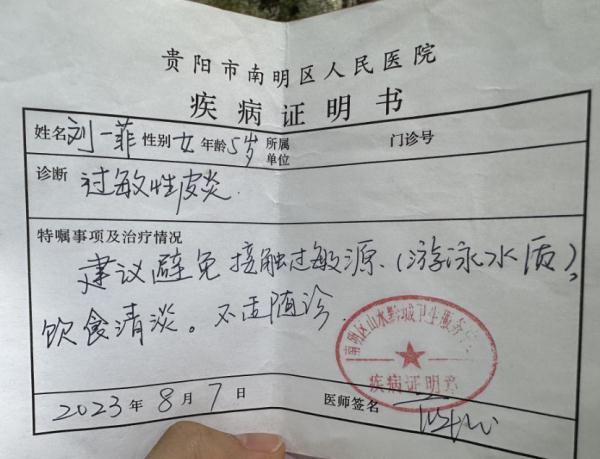 贵阳市南明区人民医院
疾病证明书
姓名 刘一菲 性别 女 年龄 5岁 所属单位 门诊号
诊断 过敏性皮炎.
特嘱事项及治疗情况
建议避免接触过敏源、(游泳水质),
饮食清淡。不适随诊.
南明区山水黔城卫生服务
疾病证明章
2023年8月7日 医师签名